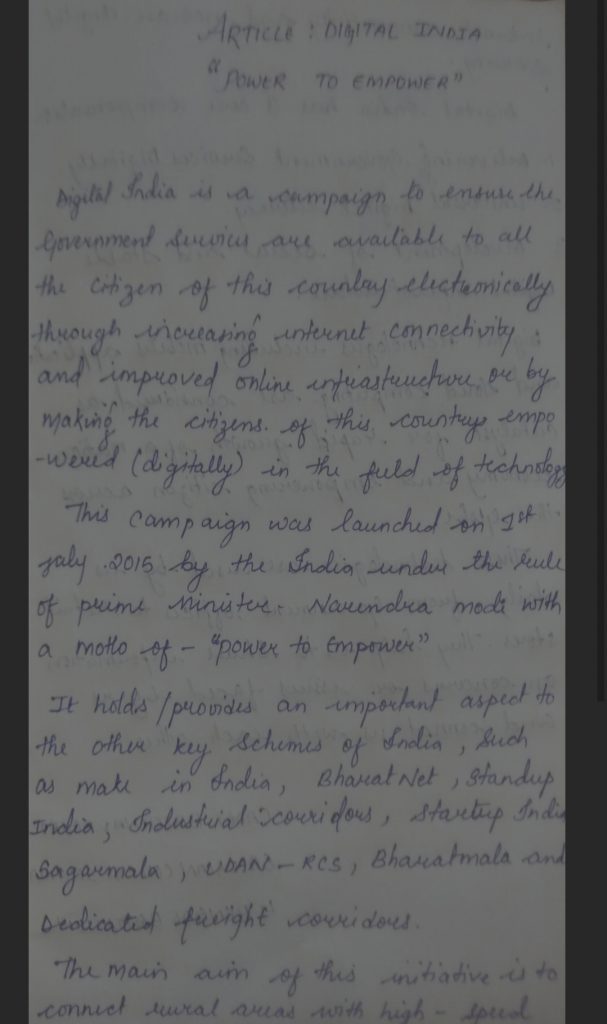 ARTICLE : DIGITAL INDIA
"POWER TO EMPOWER"
Digital India is a campaign to ensure the
Government Services are available to all
the citizen of this country electronically
through increasing internet connectivity
and improved online infrastructure or by
making the citizens. of this country empo
-wered (digitally) in the field of technology
This campaign was launched on 1st
july 2015 by the India under the rule
of prime Minister. Narendra modi with
a motto of - "power to Empower"
It holds/provides an important aspect to
the other key Schemes of India, Such
as make in India, Bharat Net, Standup
India, Industrial corridors, Startup India
Sagarmala, UDAN-RCS, Bharatmala and
Dedicated freight corridors.
The main aim of this initiative is to
connect rural areas with high-speed